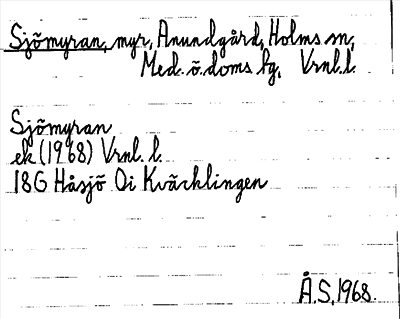 Sjömyran, myr, Anundgård, Holms sn,
Med. ö. doms hg, Vrnl. l.
Sjömyran
ek (1968) Vrnl. l.
18G Håsjö Oi Kväcklingen
Å.S, 1968.